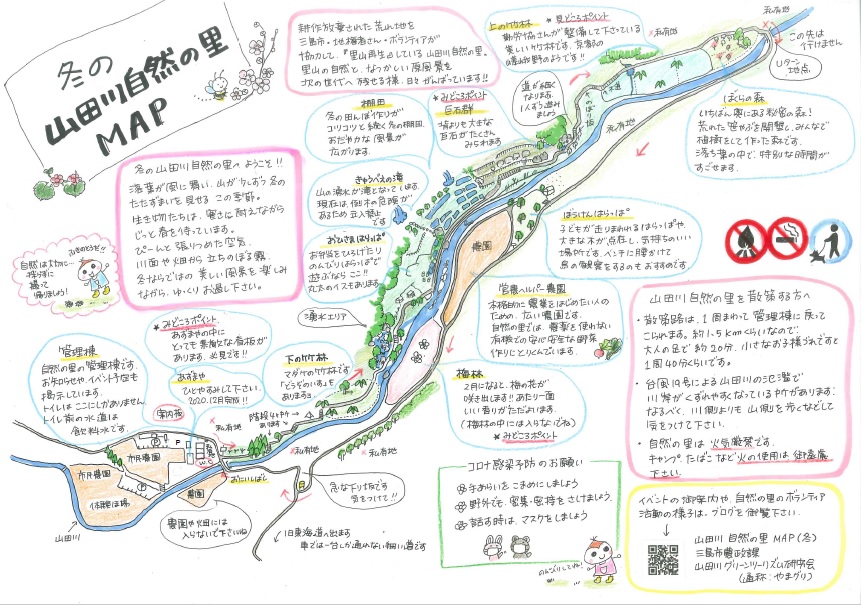 冬の
山田川自然の里
MAP
耕作放棄された荒れ地を
三島市・地権者さん・ボランティアが
協力して『里山再生』している山田川自然の里。
里山の自然と、なつかしい原風景を
次の世代へ残せる様、日々がんばっています!!
上の竹林 *見どころポイント
美しい竹林です。京都の
嵯峨野のようです!!
私有地
この先は
行けません
Uターン
地点
道が細く
なります。
1人ずつ進み
ましょう
のぼり坂
水道
私有地
ぼくらの森
いちばん奥にある秘密の森!
荒れた笹やぶを開墾し、みんなで
植樹をして作った森です。
落ち葉の中で、特別な時間が
すごせます。
棚田
冬の田んぼ作りが
コツコツと続く冬の棚田。
おだやかな風景が
広がります。
*みどころポイント
巨石群
巨石がたくさん
みられます
冬の山田川自然の里へようこそ!!
落葉が風に舞い、山が少しずつ冬の
たたずまいを見せるこの季節。
生き物たちは、寒さに耐えながら
じっと春を待っています。
ぴーんと張りつめた空気、
川面や畑から立ちのぼる霧、
冬ならではの美しい風景を楽しみ
ながら、ゆっくりお過し下さい。
山の湧水が滝となってします。
現在は、倒木の危険が
あるため立入禁止
です
おひさまはらっぱ
お弁当をひろげたり
のんびりはらっぱで
遊ぶならここ!!
丸太のイスもあります。
湧水エリア
農園
ぼうけんはらっぱ
子どもが走りまわれるはらっぱや、
大きな木が点在し、気持ちのいい
場所です。ベンチに腰かけて
鳥の観察をするのもおすすめです。
営農ヘルパー農園
本格的に農業をはじめたい人の
ための、広い農園です。
自然の里では、農薬を使わない
有機での安心安全な野菜
作りにとりくんでいます。
山田川自然の里を散策する方へ
・散策路は、1周まわって管理棟に戻って
こられます。約1.5kmくらいなので、
大人の足で約20分、小さなお子様づれですと
1周40分くらいです。
・台風19号による山田川の氾濫で
川岸がくずれやすくなっているカ所があります。
なるべく、川側よりも山側を歩くなどして
気をつけて下さい。
・自然の里は火気厳禁です。
キャンプ、たばこなど火の使用は御遠慮
下さい。
自然は大切に…
持ち帰りましょう!
管理棟
自然の里の管理棟です。
お知らせや、イベント予定も
掲示しています。
トイレはここにしかありません。
トイレ前の水道は
飲料水です。
*みどころポイント
あずまやの中に
とっても素敵な看板が
あります。必見です!!
あずまや
ひとやすみして下さい。
2020.12月完成!!
案内板
下の竹林
マダケの竹林です
梅林
2月になると、梅の花が
咲き出します!!あたり一面
いい香りがただよいます。
(梅林の中には入らないでね)
*みどころポイント
階段4カ所
あります
私有地
私有地
P
市民農園
市民農園
体験ほ場
農園
山田川
おにいしばし
農園や畑には
入らないで下さいね
急な下り坂です
気をつけて!!
旧東海道へ出ます
車では一台しか通れない細い道です
コロナ感染予防のお願い
手あらいをこまめにしましょう
野外でも、密集・密接をさけましょう
話す時は、マスクをしましょう
イベントの御案内や、自然の里のボランティア
活動の様子は、ブログを御覧下さい。
山田川 自然の里 MAP(冬)
三島市農政課
山田川グリーンツーリズム研究会
(通称:やまグリ)